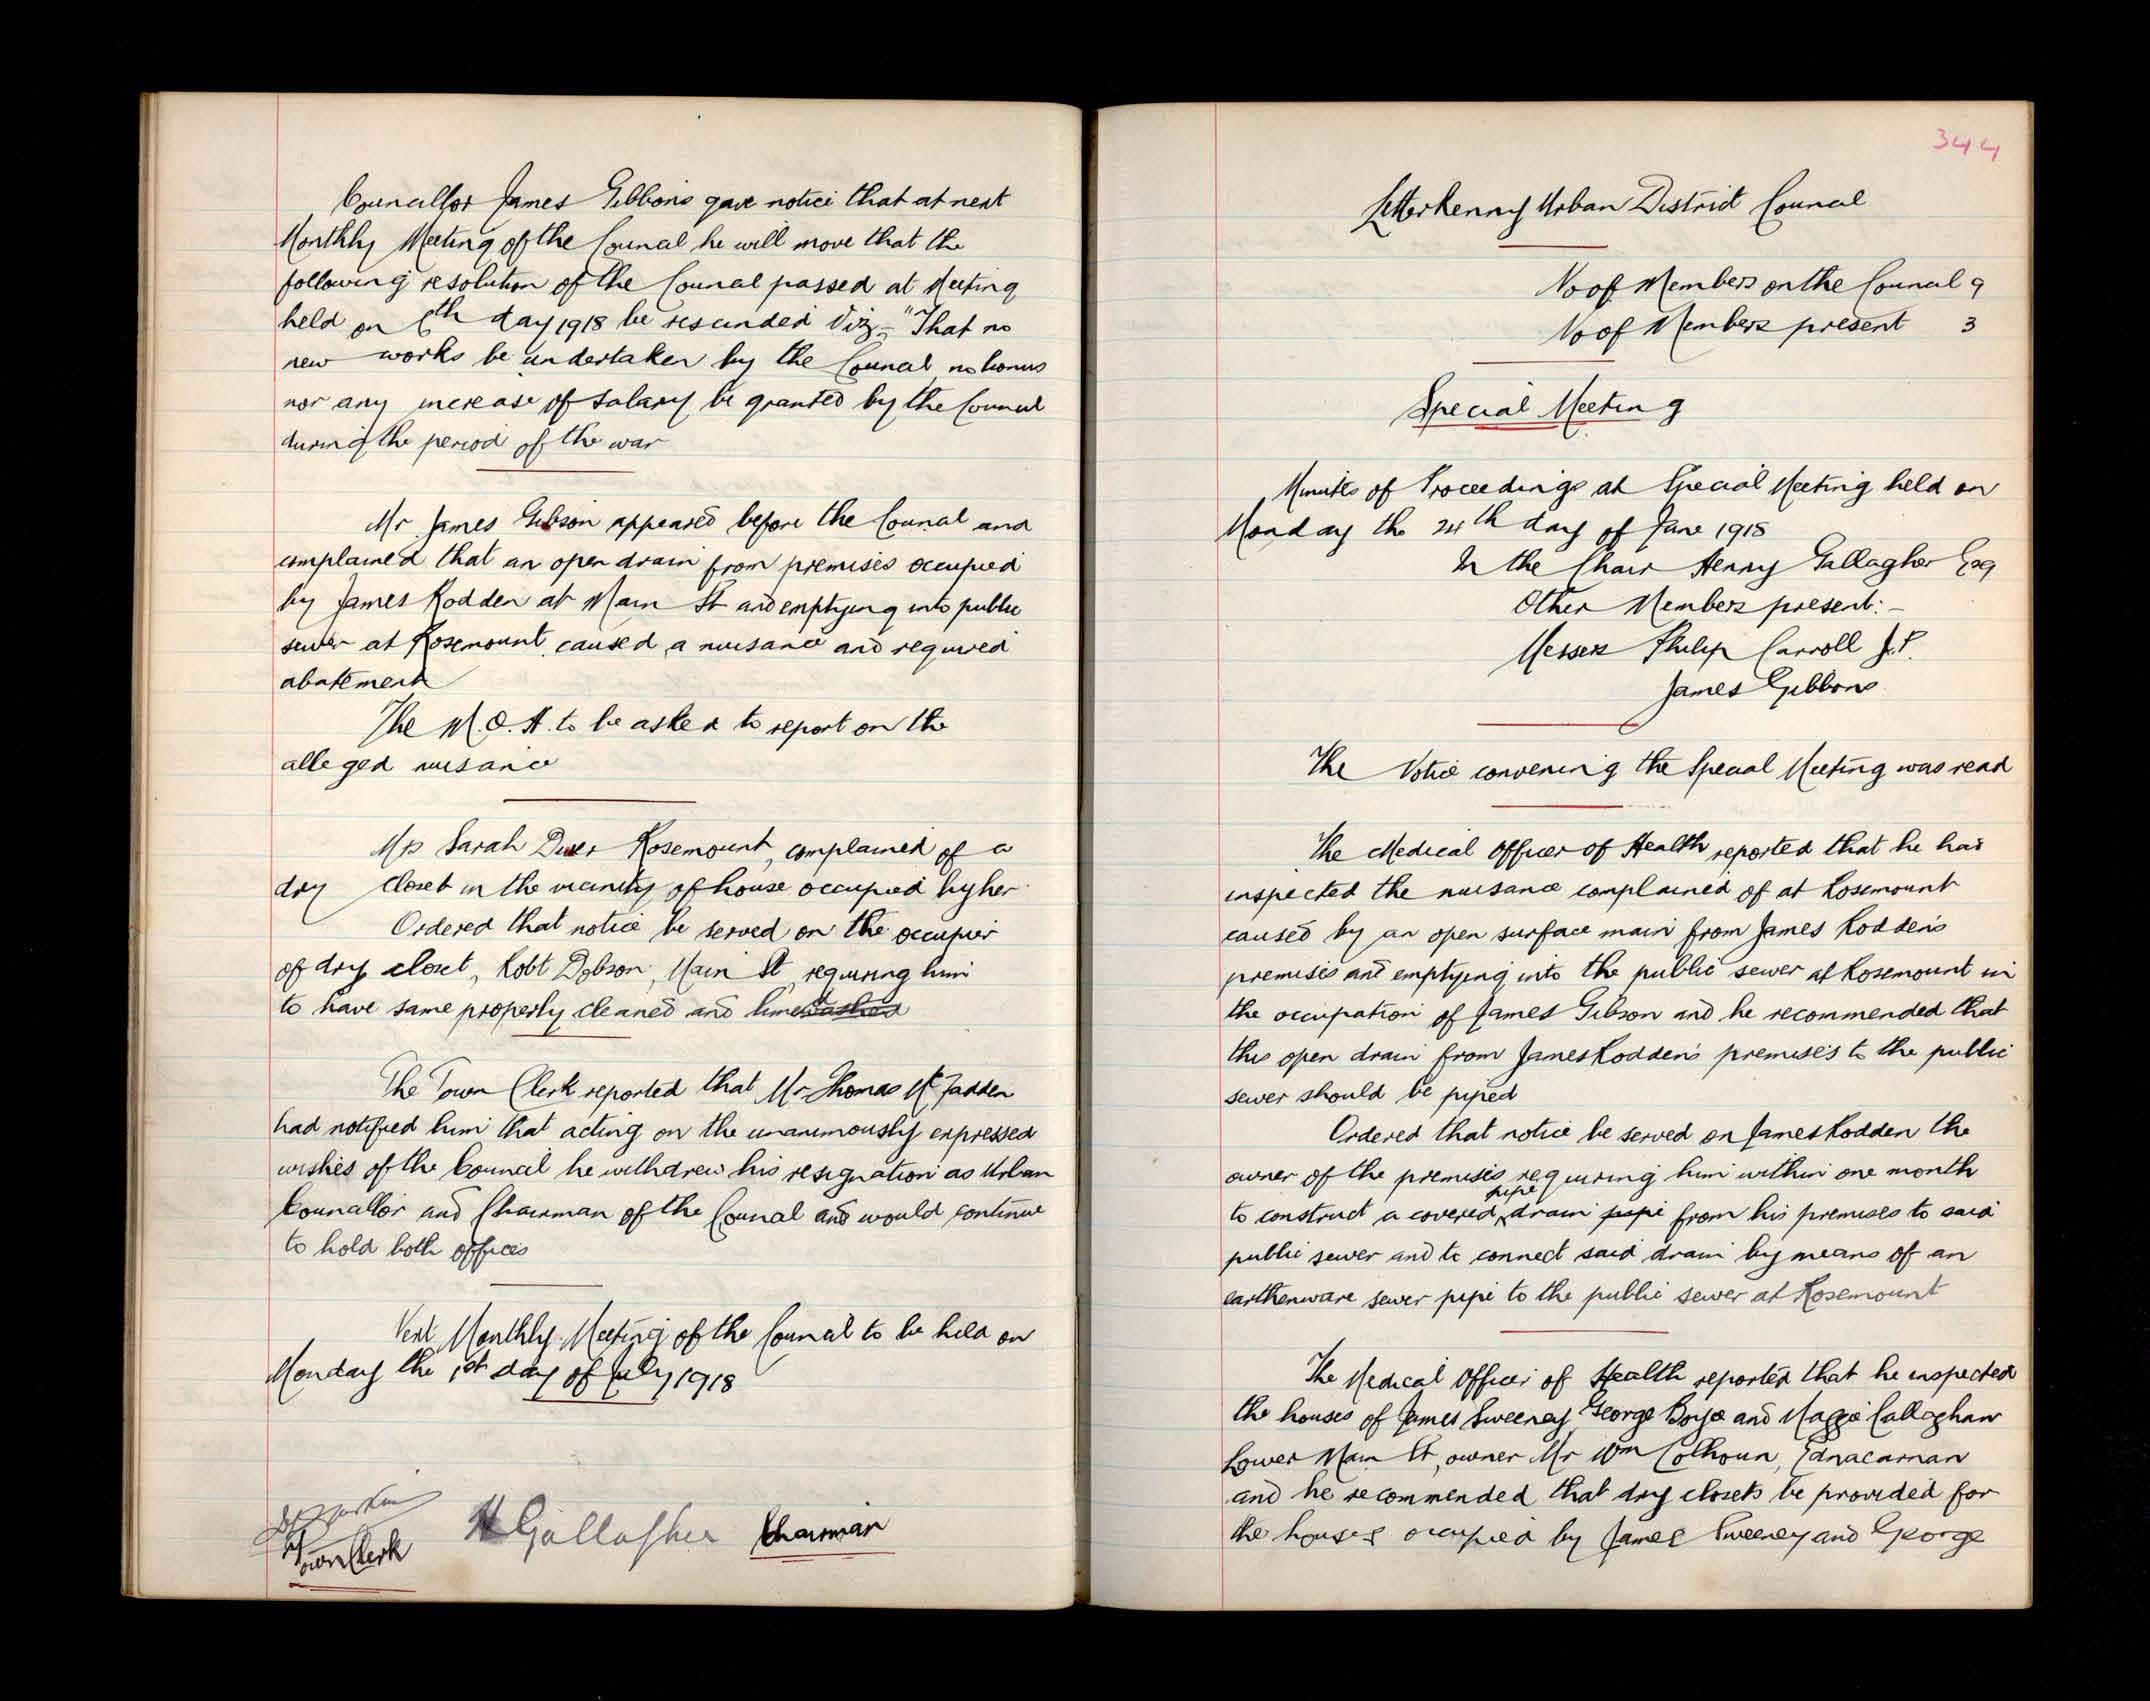 Councillor James Gibbons gave notice that at next
Monthly Meeting of the Council he will move that the
following resolution of the Council passed at Meeting
held on 6th May 1918 be rescinded Viz - "That no
new works be undertaken by the Council, no bonus
nor any increase of salary be granted by the Council
during the period of the war
Mr James Gibson appeared before the Council and
complained that an open drain from premises occupied
by James Rodden at Main St and emptying into public
sewer at Rosemount caused a nuisance and required
abatement
The M.O.H. to be asked to report on the
alleged nuisance
Mrs Sarah Duer Rosemount, complained of a
dry closet in the vicinity of house occupied by her
Ordered that notice be served on the occupier
of dry closet, Robt Dobson, Main St, requiring him
to have same properly cleaned and limewashed
The Town Clerk reported that Mr Thomas McFadden
had notified him that acting on the unanimously expressed
wishes of the Council he withdrew his resignation as Urban
Councillor and Chairman of the Council and would continue
to hold both offices
Next Monthly Meeting of the Council to be held on
Monday the 1st day of July 1918
H Gallagher Chairman
Town Clerk
344
Letterkenny Urban District Council
No of Members on the Council 9
No of Members present 3
Special Meeting
Minutes of Proceedings at Special Meeting held on
Monday the 24th day of June 1918
In the Chair Henry Gallagher Esq
Other Members present:-
Messrs Philip Carroll J.P.
James Gibbons
The Notice convening the Special Meeting was read
The Medical Officer of Health reported that he had
inspected the nuisance complained of at Rosemount
caused by an open surface main from James Rodden's
premises and emptying into the public sewer at Rosemount in
the occupation of James Gibson and he recommended that
this open drain from James Rodden's premises to the public
sewer should be piped
Ordered that notice be served on James Rodden the
owner of the premises requiring him within one month
to construct a covered pipe drain pipe from his premises to said
public sewer and to connect said drain by means of an
earthenware sewer pipe to the public sewer at Rosemount
The Medical Officer of Health reported that he inspected
the houses of James Sweeney George Boyce and Maggie Callaghan
Lower Main St, owner Mr Wm Colhoun, Ednacarnan
and he recommended that dry closets be provided for
the houses occupied by James Sweeney and George